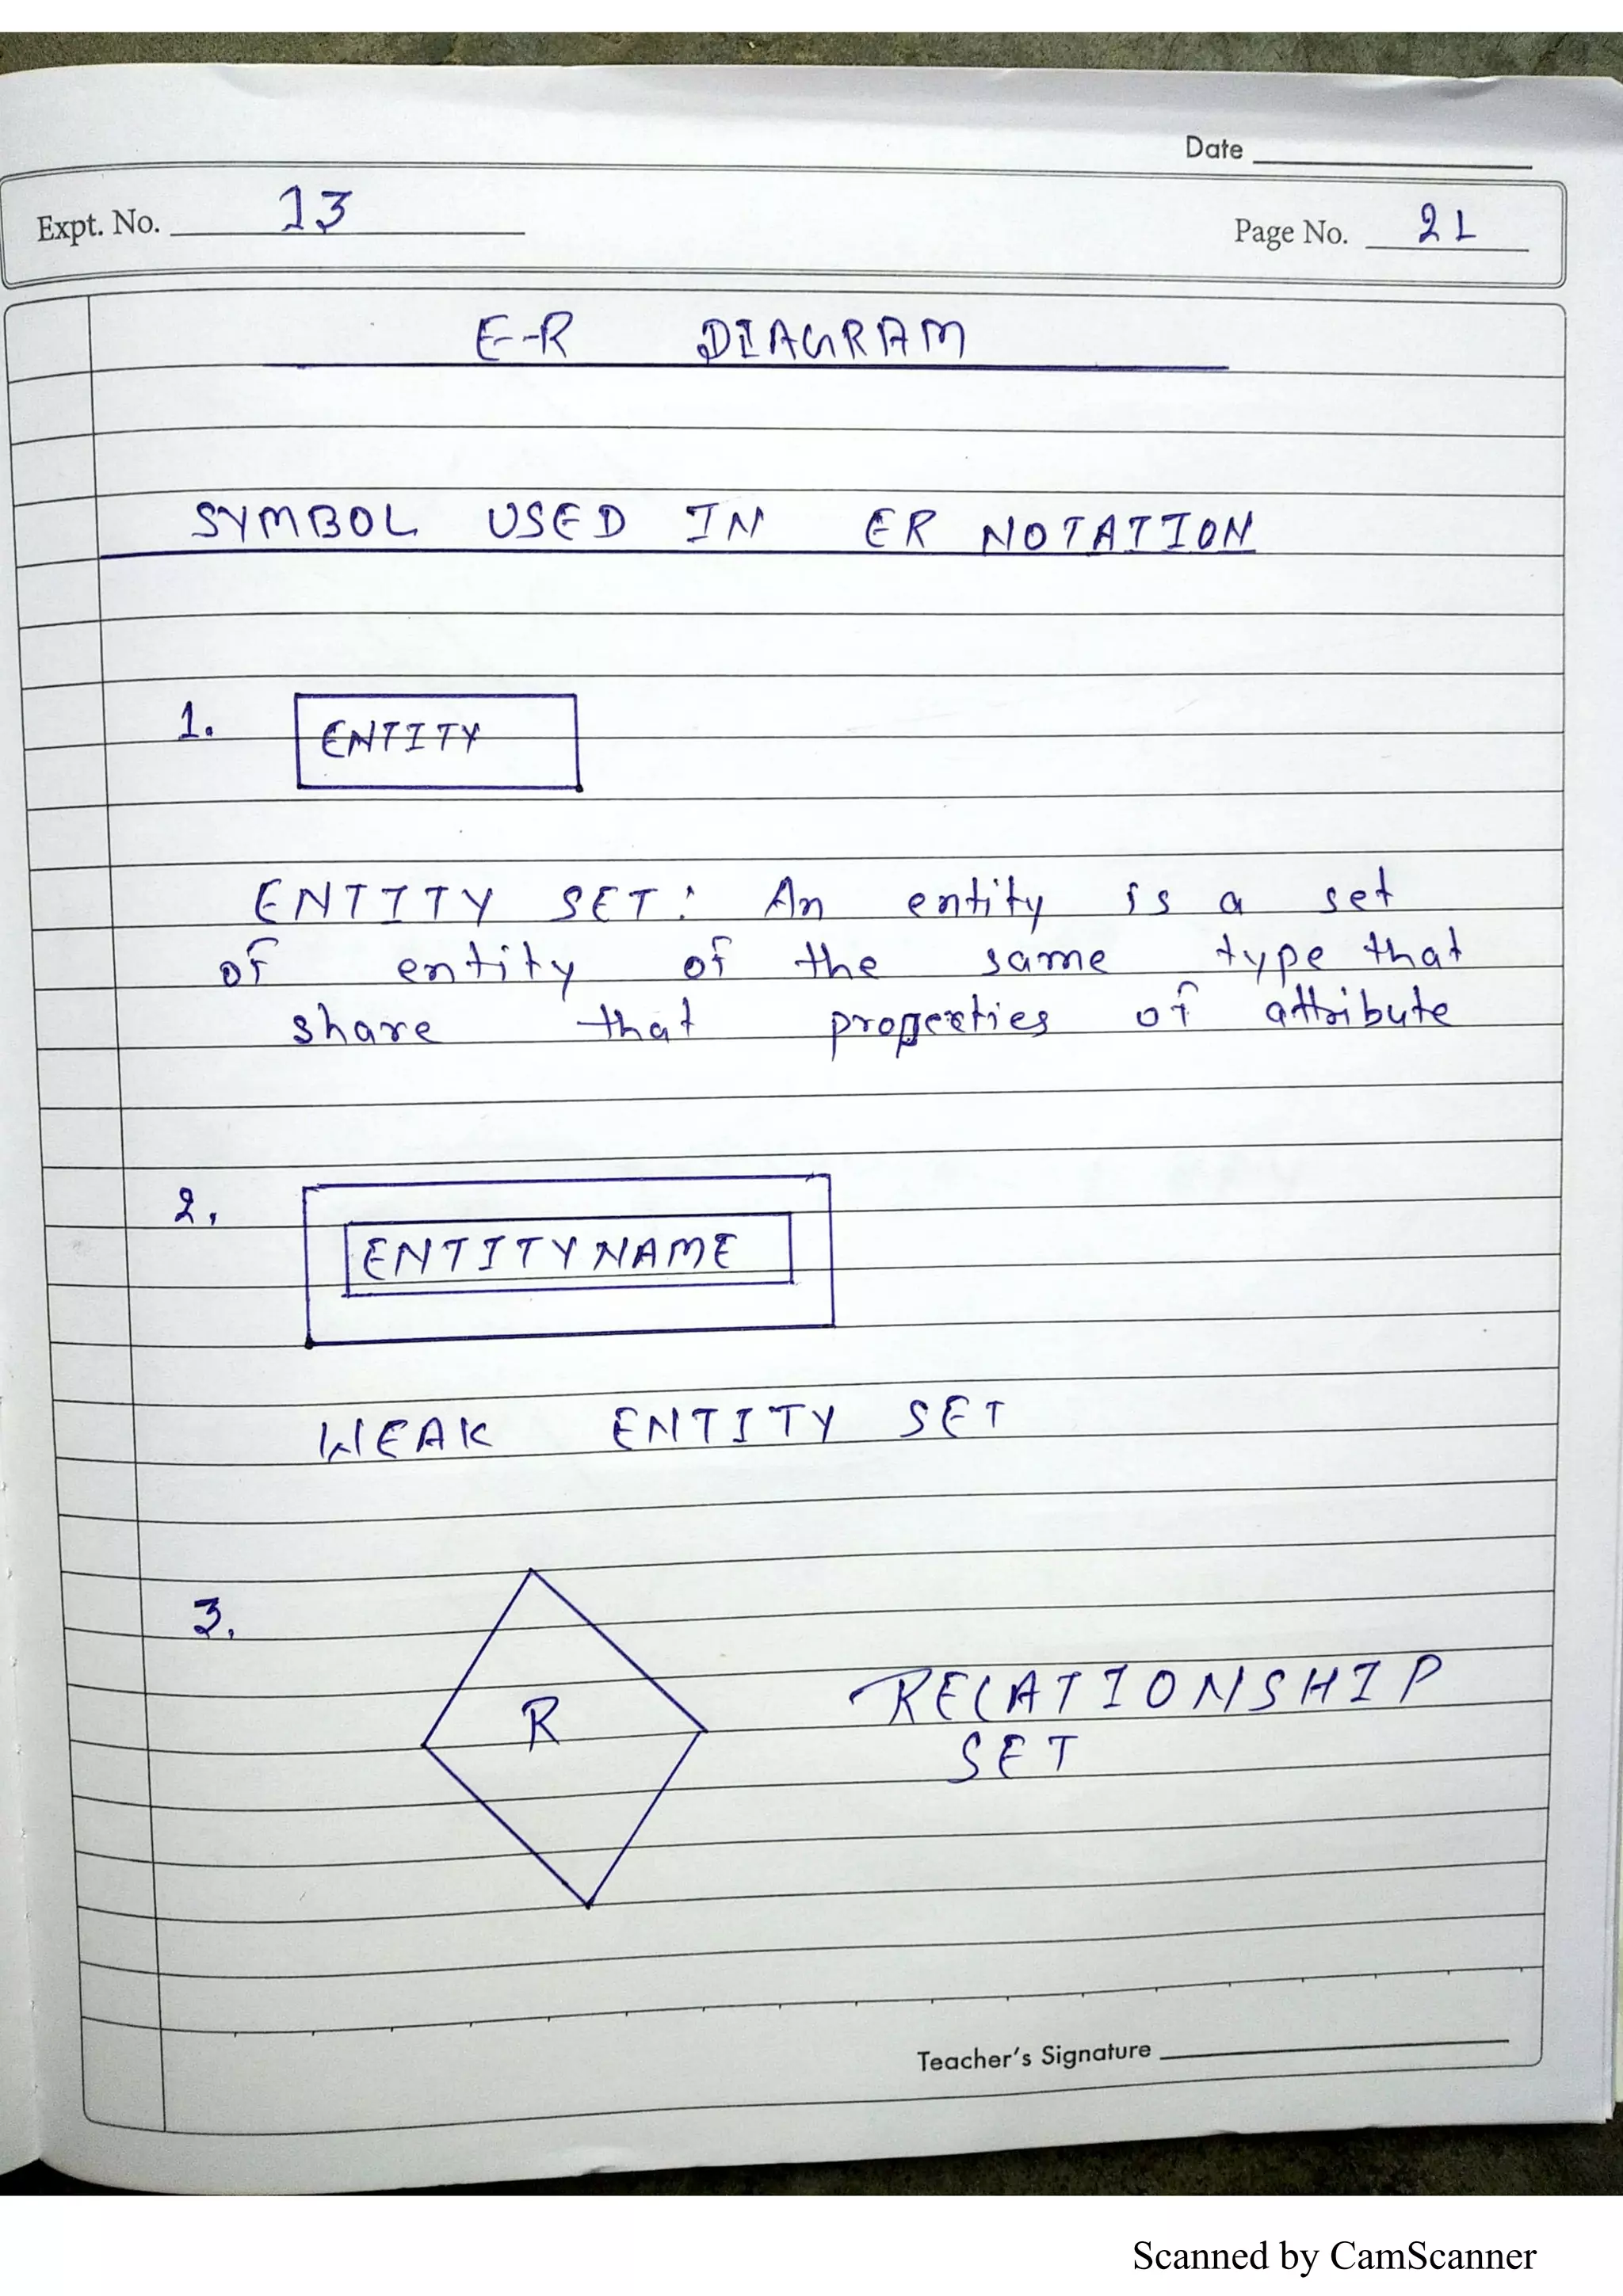 Date
Expt. No. 13
Page No. 21
E-R DIAGRAM
SYMBOL USED IN ER NOTATION
1. ENTITY
ENTITY SET: An entity is a set
of entity of the same type that
share that properties of attribute
2. ENTITY NAME
WEAK ENTITY SET
3. R
RELATIONSHIP
SET
Teacher's Signature
Scanned by CamScanner